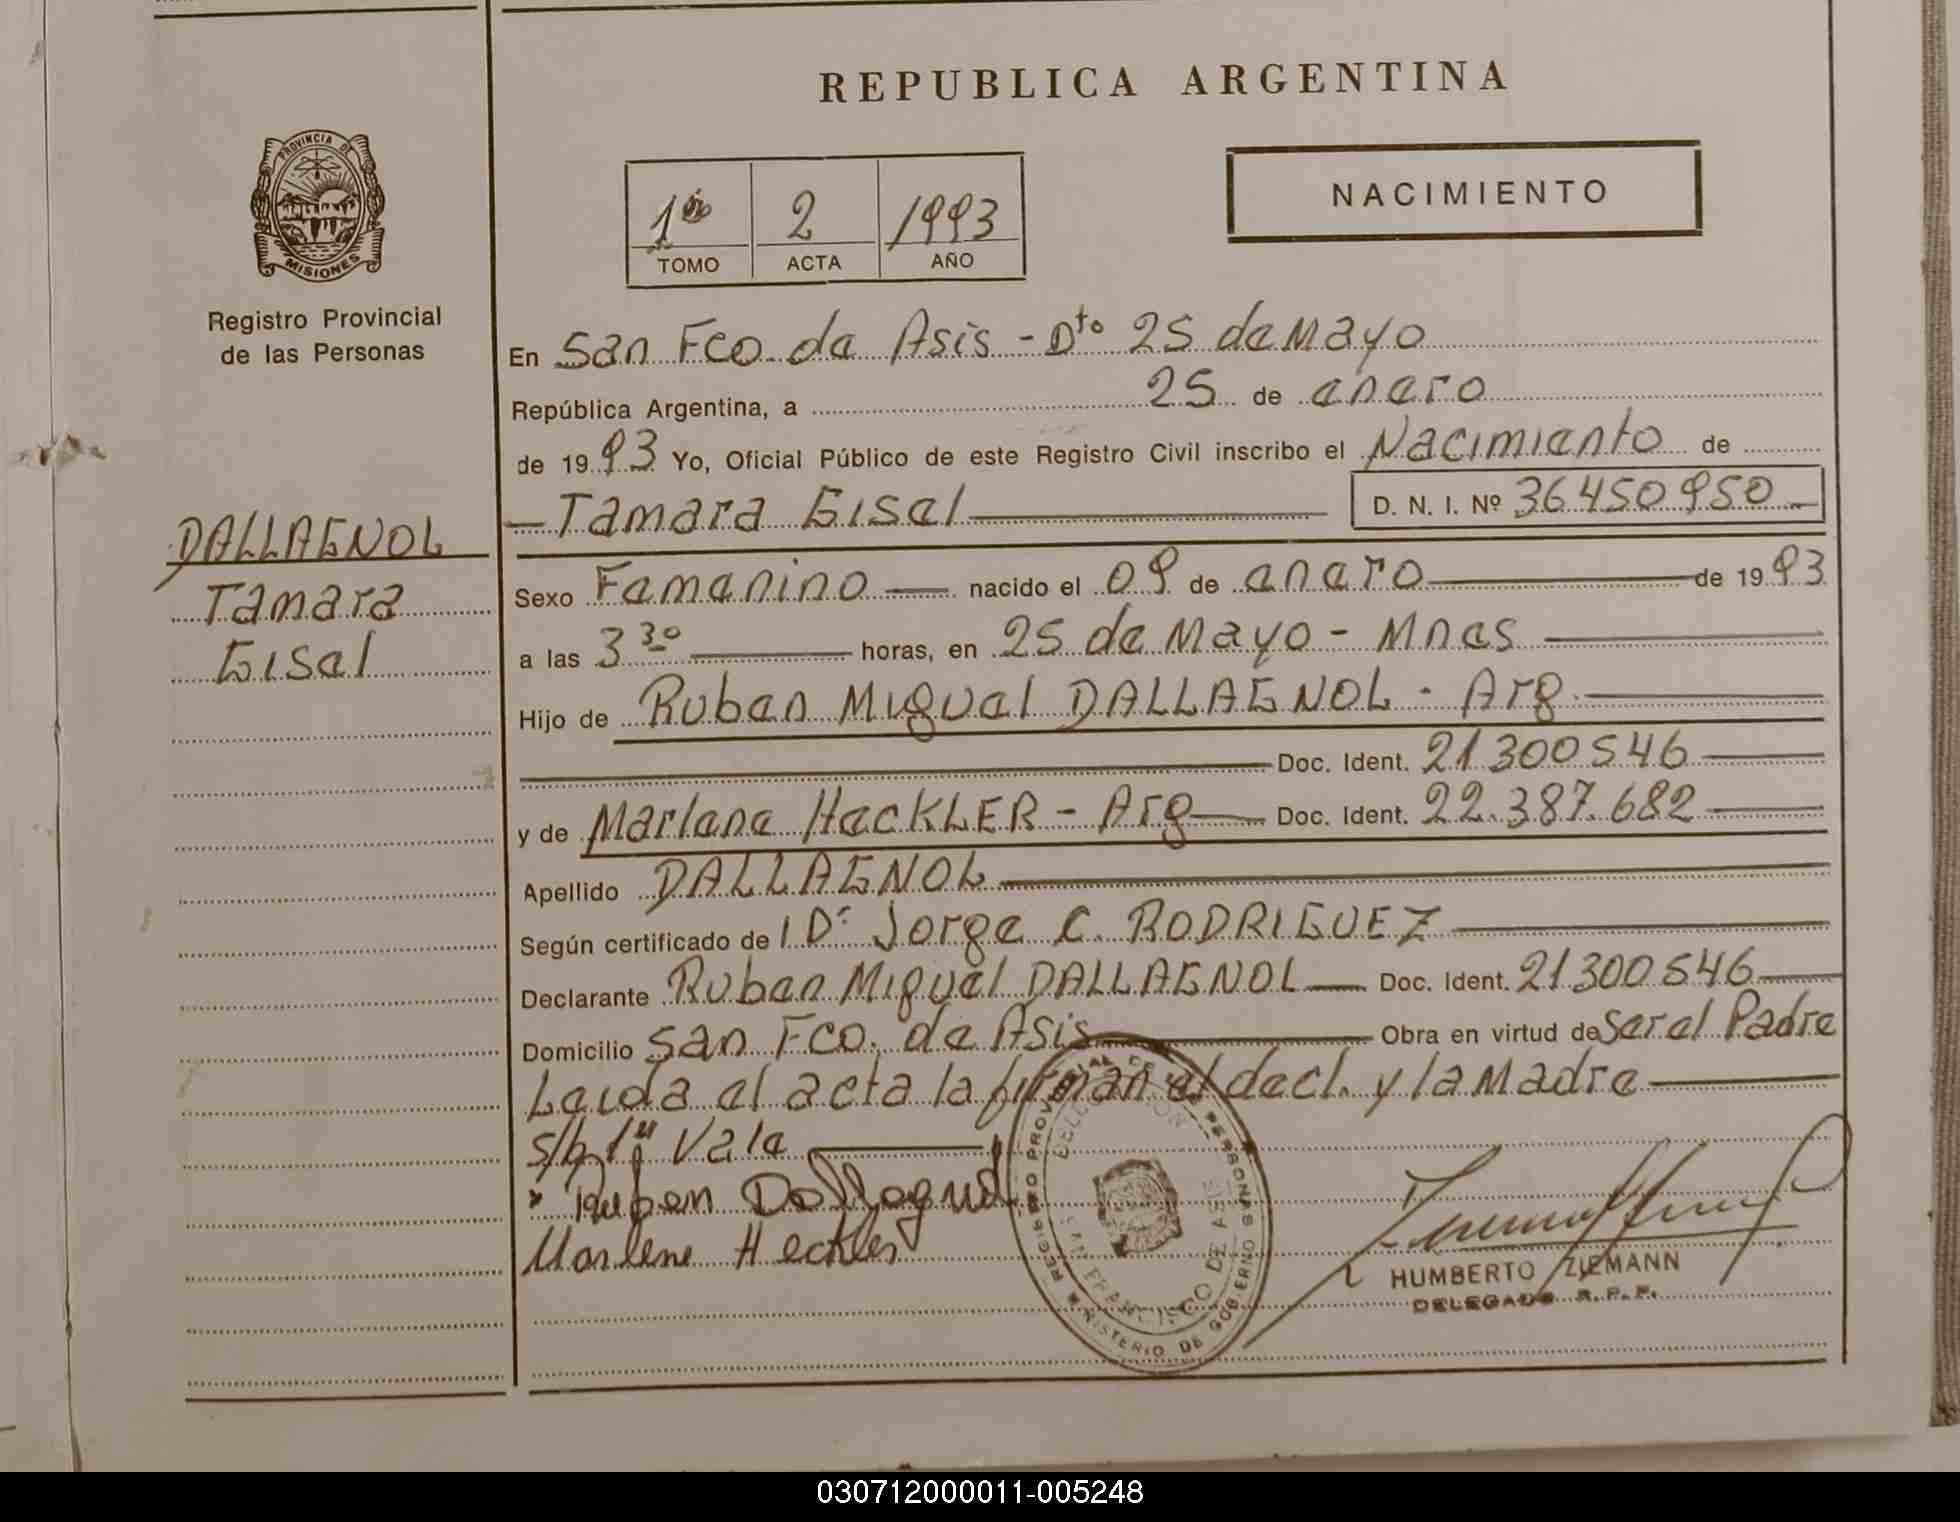 REPUBLICA ARGENTINA
PROVINCIA DE
MISIONES
Registro Provincial
de las Personas
1º 2 1993
TOMO ACTA AÑO
NACIMIENTO
DALLAGNOL
Tamara
Gisel
En San Fco. de Asis - Dto 25 de Mayo
República Argentina, a 25 de enero
de 1993 Yo, Oficial Público de este Registro Civil inscribo el Nacimiento de
Tamara Gisel D. N. I. Nº 36450950
Sexo Femenino nacido el 09 de enero de 1993
a las 3 30 horas, en 25 de Mayo - Mnes
Hijo de Ruben Miguel DALLAGNOL - Arg.
Doc. Ident. 21300546
y de Marlene HecKLER - Arg Doc. Ident. 22.387.682
Apellido DALLAGNOL
Según certificado de Dr Jorge C. RODRIGUEZ
Declarante Ruben Miguel DALLAGNOL Doc. Ident. 21300546
Domicilio San Fco. de Asis Obra en virtud de Ser el Padre
Leida el acta la firman el decl. y la Madre
s/b Vale
Ruben Dallagnol
Marlene Heckler
SAN FRANCISCO DE ASIS
MINISTERIO DE GOBIERNO
HUMBERTO ZIEMANN
DELEGADO R. P. P.
030712000011-005248